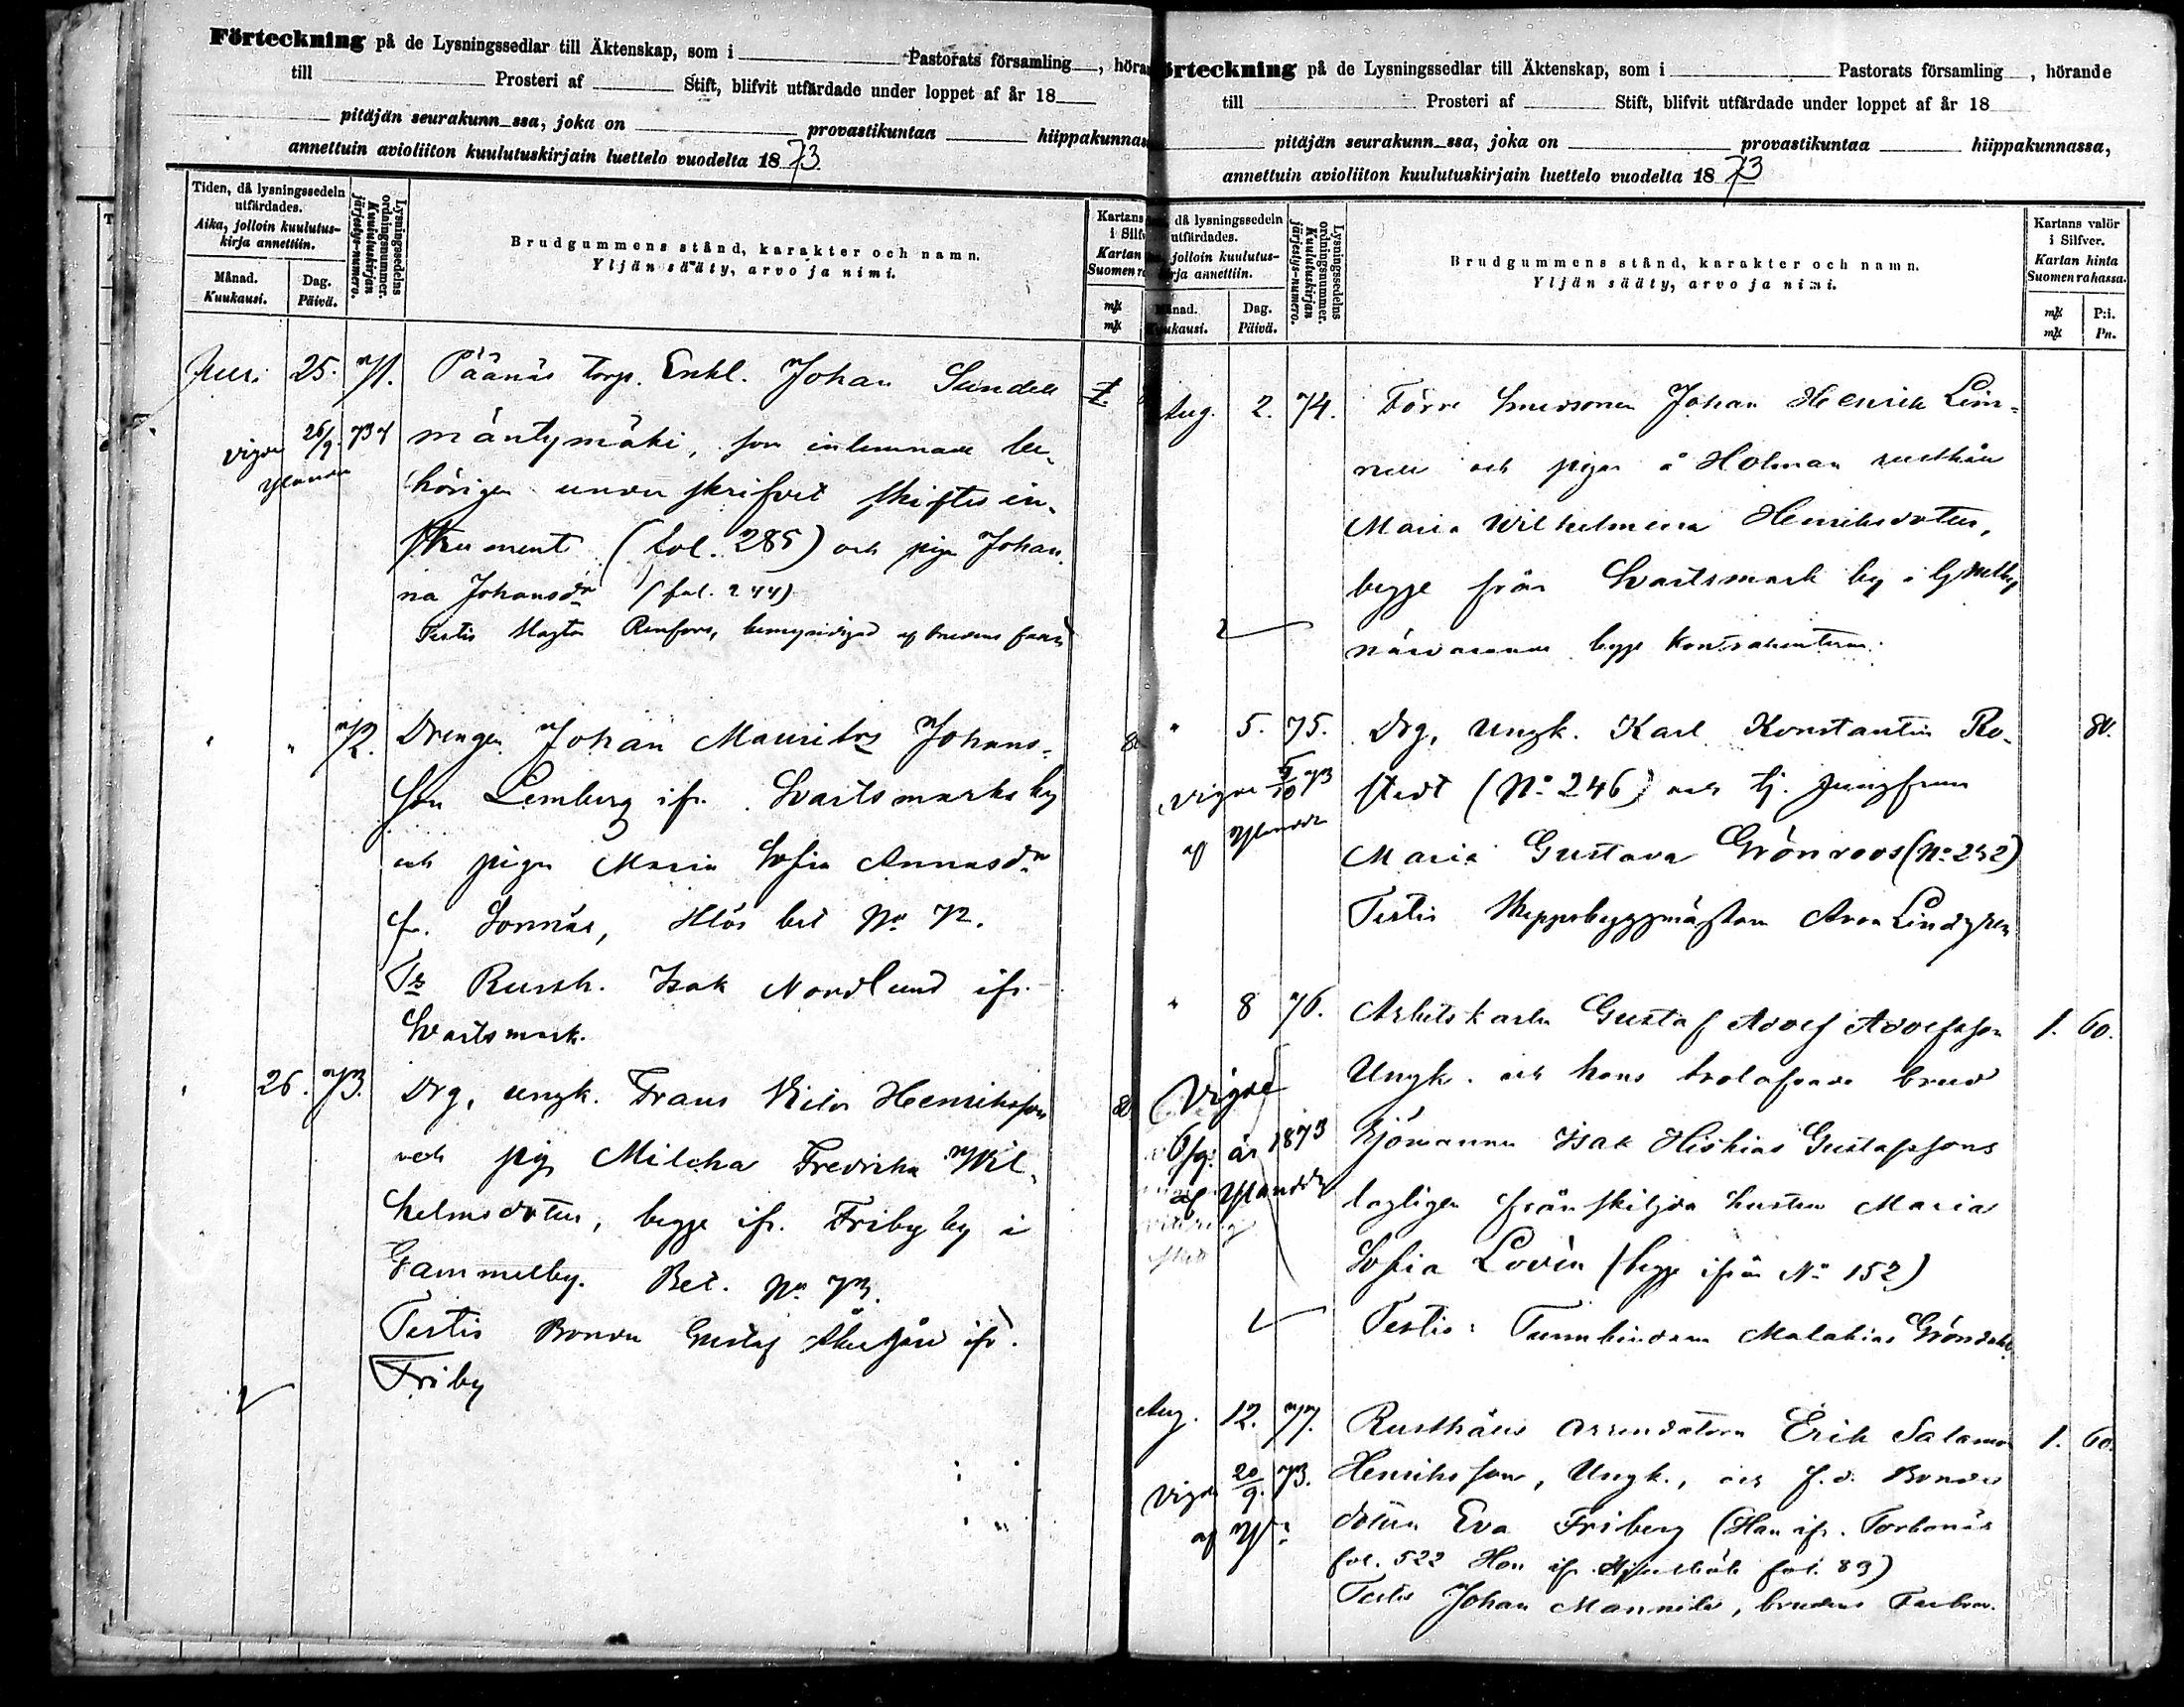 Förteckning på de Lysningssedlar till Äktenskap, som i Pastorats församling, höra
till Prosteri af Stift, blifvit utfärdade under loppet af år 18
pitäjän seurakunn ssa, joka on provastikuntaa hiippakunnas
annettuin avioliiton kuulutuskirjain luettelo vuodelta 1873.
Tiden, då lysningssedeln utfärdades.
Aika, jolloin kuulutus-kirja annettiin.
Månad. Kuukausi.
Dag. Päivä.
Lysningssedelns ordningsnummer.
Kuulutuskirjan järjestys-numero.
Brudgummens stånd, karakter och namn.
Yljän sääty, arvo ja nimi.
Kartans
i Silfv
Kartan
Suomen ra
mk
mk
Juni 25. 71. Päänäs torp. Enkl. Johan Sundell 1.
vigde 26/9. 73 mäntymäki, som inlemnade be-
hörigen underskrifvet skiftesin-
strument (fol. 285) och pigan Johan
na Johansdr (fol. 244)
Testis Renfors, bemyndigad af brudens
" " 72. Drengen Johan Mauritz Johans-
son Lemberg ifr. Svartsmarks by
och pigan Maria Sofia Annasdr
fr. Sonnäs, bet No 72.
Ts Rusth. Isak Nordlund ifr.
Svartsmark.
" 26. 73. Drg, ungk. Frans Henriksson
och pig. Milcha Fredrika Wil-
helmsdotter, begge ifr. Friby by i
Gammelby. Bet. No 73.
Testis Bonden Gustaf ifr.
Friby
Förteckning på de Lysningssedlar till Äktenskap, som i Pastorats församling, hörande
till Prosteri af Stift, blifvit utfärdade under loppet af år 18
pitäjän seurakunn ssa, joka on provastikuntaa hiippakunnassa,
annettuin avioliiton kuulutuskirjain luettelo vuodelta 1873
då lysningssedeln utfärdades.
jolloin kuulutus-
rja annettiin.
Månad. Kuukausi.
Dag. Päivä.
Lysningssedelns ordningsnummer.
Kuulutuskirjan järjestys-numero.
Brudgummens stånd, karakter och namn.
Yljän sääty, arvo ja nimi.
Kartans valör i Silfver.
Kartan hinta Suomen rahassa.
mk P:i.
mk Pn.
Aug. 2. 74. Förre Johan Henrik Lin-
och pigan å Holman rusthåll
Maria Wilhelmina Henriksdotter,
begge från Svartsmark by i
närvarande begge kontrahenterna.
" 5. 75. Drg, Ungk. Karl Konstantin Ro- 80.
vigde 5/10 73 stedt (No 246) och tj. Jungfrun
af Maria Gustava Grönroos (No 232)
Testis Skeppsbyggmästaren Aron Lindgren
" 8 76. Arbetskarlen Gustaf Adolf Adolfsson 1. 60.
Vigde Ungk. och hans trolofvade brud
6/9. år 1873 Sjömannen Isak Hiskias Gustafssons
af lagligen frånskiljda hustru Maria
Sofia Lovén (begge ifrån No 152)
Testis: Tunnbindaren Malakias Gröndahl
Aug. 12. 77. Rusthålls Arrendatorn Erik Salomon 1. 60.
Vigde 20/9. 73. Henriksson, Ungk., och f.d. Bonde
af dottern Eva Friberg (Han ifr. Torbonäs
fol. 522 Hon ifr. fol. 89)
Testis Johan Mannila, brudens Farbror.